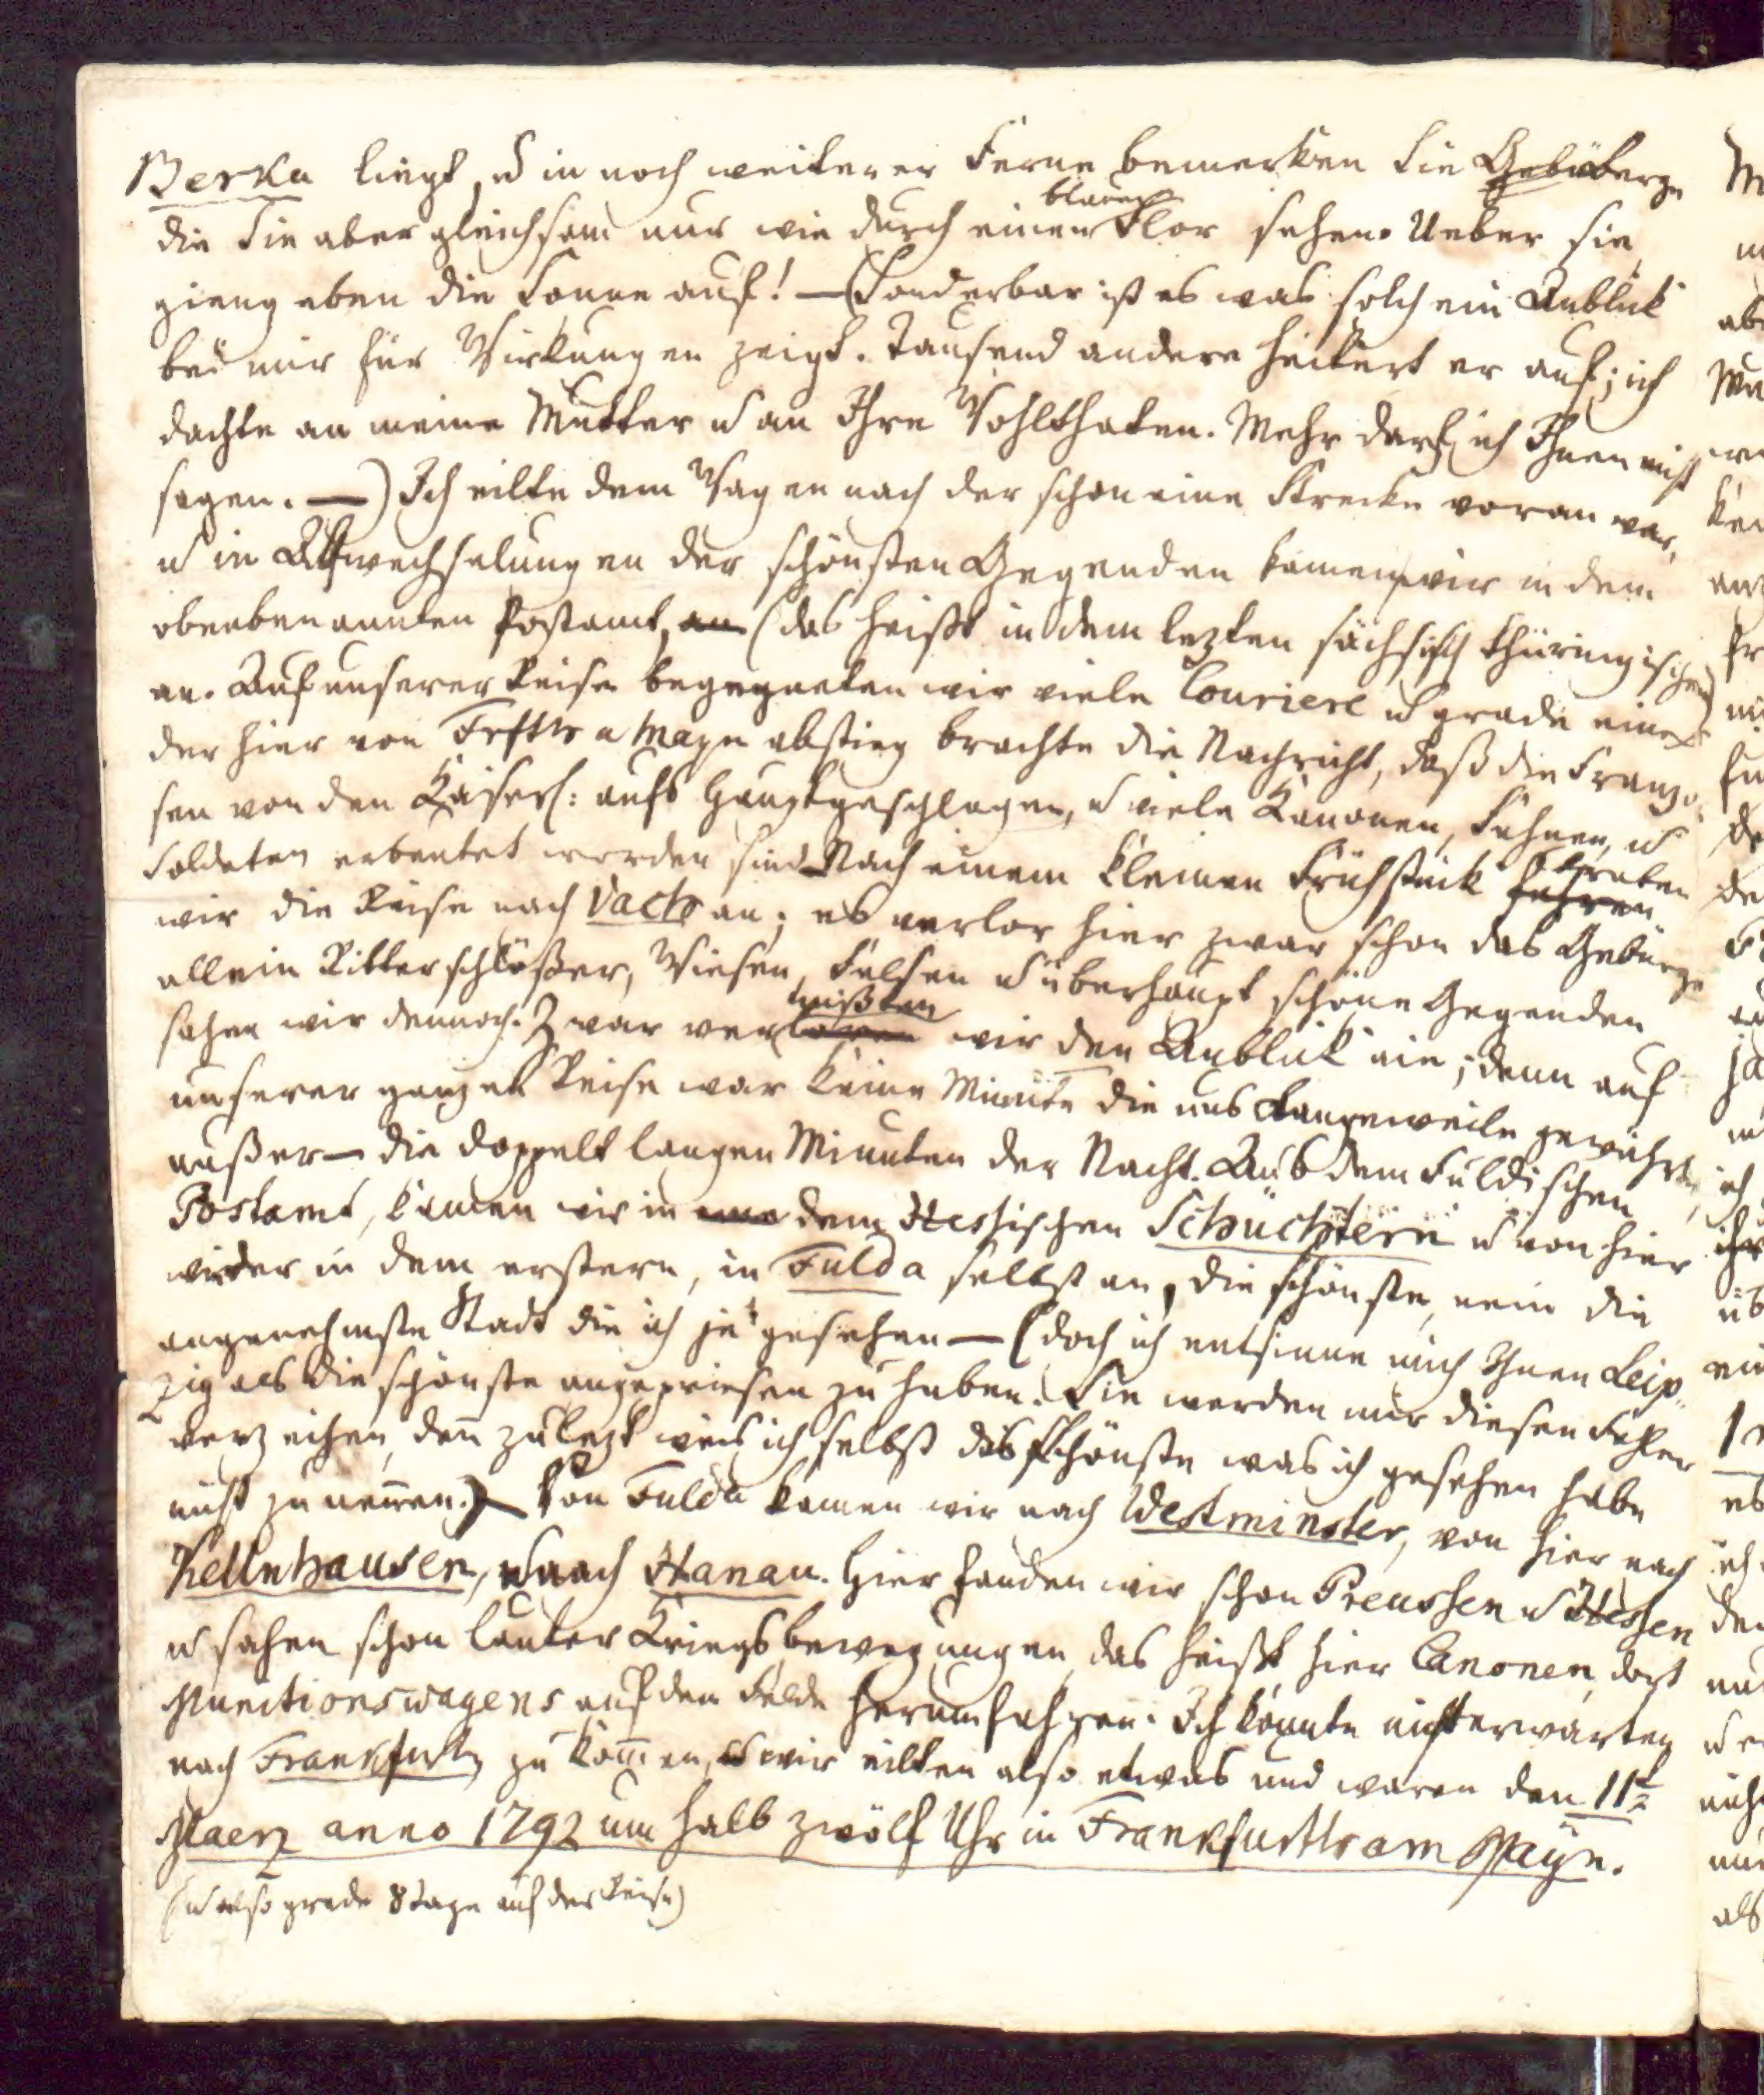 Berka liegt, u in noch weiterer Ferne bemerken Sie Gebüberge
die Sie aber gleichsam nur wie durch einen blauen Flor sehen. Ueber sie
gieng eben die Sonne auf! — (Sonderbar ist es was solch ein Anblick
bei mir für Wirkungen zeigt. Tausend andere heitert er auf; ich
dachte an meine Mutter u an Ihre Wohlthaten. Mehr darf ich Ihnen nicht
sagen. —) Ich eilte dem Wagen nach der schon eine Strecke voran war,
u in Abwechselungen der schönsten Gegenden kamen wir in dem
obenbenannten Postamt, an (das heisst in dem lezten sächsisch thüringischen)
an. Auf unserer Reise begegneten wir viele Couriere u grade einer
der hier von Frfth a Mayn abstieg brachte die Nachricht, daß die Franzo-
sen von den Kaiserl: aufs Haupt geschlagen, u viele Kanonen, Fahnen, u
Soldaten erbeutet worden sind. Nach einem kleinen Frühstück fuhren traten
wir die Reise nach Vach an; es verlor hier zwar schon das Gebürge
allein Ritterschlößer, Wiesen, Felsen u überhaupt schöne Gegenden
sahen wir dennoch. Zwar verloren mißten wir den Anblick nie; denn auf
unserer ganzen Reise war keine Minute die uns Langeweile gewährte,
außer — die doppelt langen Minuten der Nacht. Aus dem Fuldischen
Postamt, kamen wir in dem Hessischen Schüchtern u von hier
wieder in dem erstern, in Fulda selbst an, die schönste, nein die
angenehmste Stadt die ich je gesehen — (doch ich entsinne mich Ihnen Leip-
zig als die schönste angepriesen zu haben. Sie werden mir diesen Fehler
verzeihen, deñ zulezt weis ich selbst das schönste was ich gesehen habe
nicht zu neñen.) — Von Fulda kamen wir nach Westminster, von hier nach
Kellnhausen, u nach Hanau. Hier fanden wir schon Preussen u Hessen
u sahen schon lauter Kriegsbewegungen, das heisst, hier Canonen, dort
Munitionswagens auf den Felde herumfahren. Ich konnte nicht erwarten
nach Frankfurth zu kom̃en, u wir eilten also etwas und waren den 11t
Maerz anno 1792 um halb zwölf Uhr in Frankfurth am Mayn.
(u also grade 8 Tage auf der Reise)